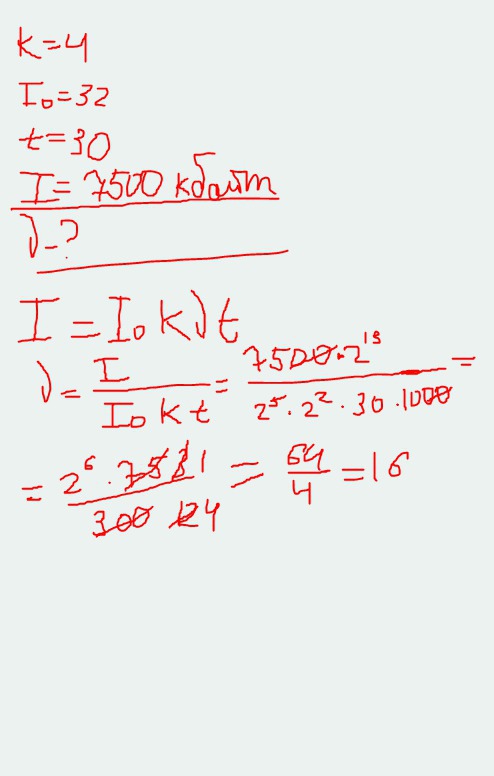 k=4
I₀=32
t=30
I=7500 кбайт
ν-?
I=I₀kνt
ν=I/(I₀kt)=7500·2¹³/(2⁵·2²·30·1000)=
=2⁶·75/300=64/4=16